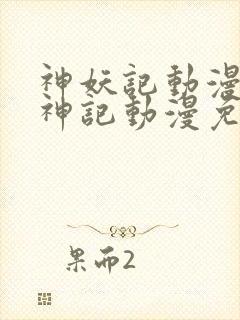 神妖記動漫
神記動漫免
果而2